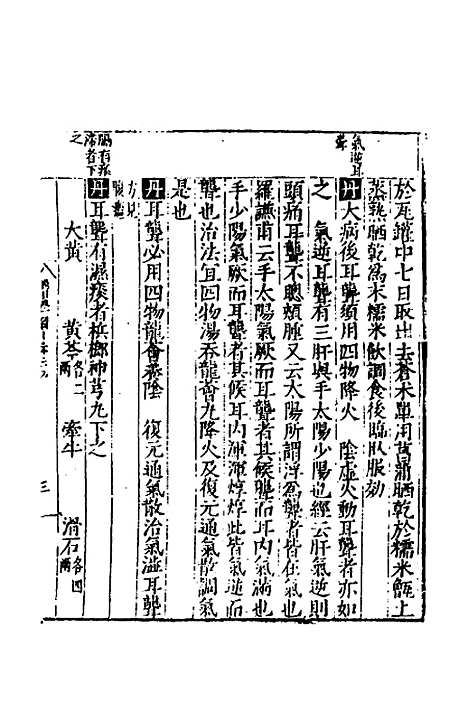 於瓦罐中七日取出去蒼术單用黄鼎晒乾於糯米甑上
蒸熟晒乾爲末糯米飲調食後臨臥服効
氣逆耳聾
丹大病後耳聾須用四物降火 陰虛火動耳聾者亦如
之 氣逆耳聾有三肝與手太陽少陽也經云肝氣逆則
頭痛耳聾不聰頰腫又云太陽所謂浮爲聾者皆在氣也
羅謙甫云手太陽氣厥而耳聾者其候聾而耳内氣滿也
手少陽氣厥而耳聾者其候耳内渾渾焞焞此皆氣逆而
聾也治法宜四物湯吞龍薈丸降火及復元通氣散調氣
是也
丹耳聾必用四物龍薈養陰 復元通氣散治氣滋耳聾
方見
腰
濕有痰滯者下之
丹耳聾有濕痰者檳榔神芎丸下之
大黄 黄芩各二兩 牽牛 滑石各四兩
三